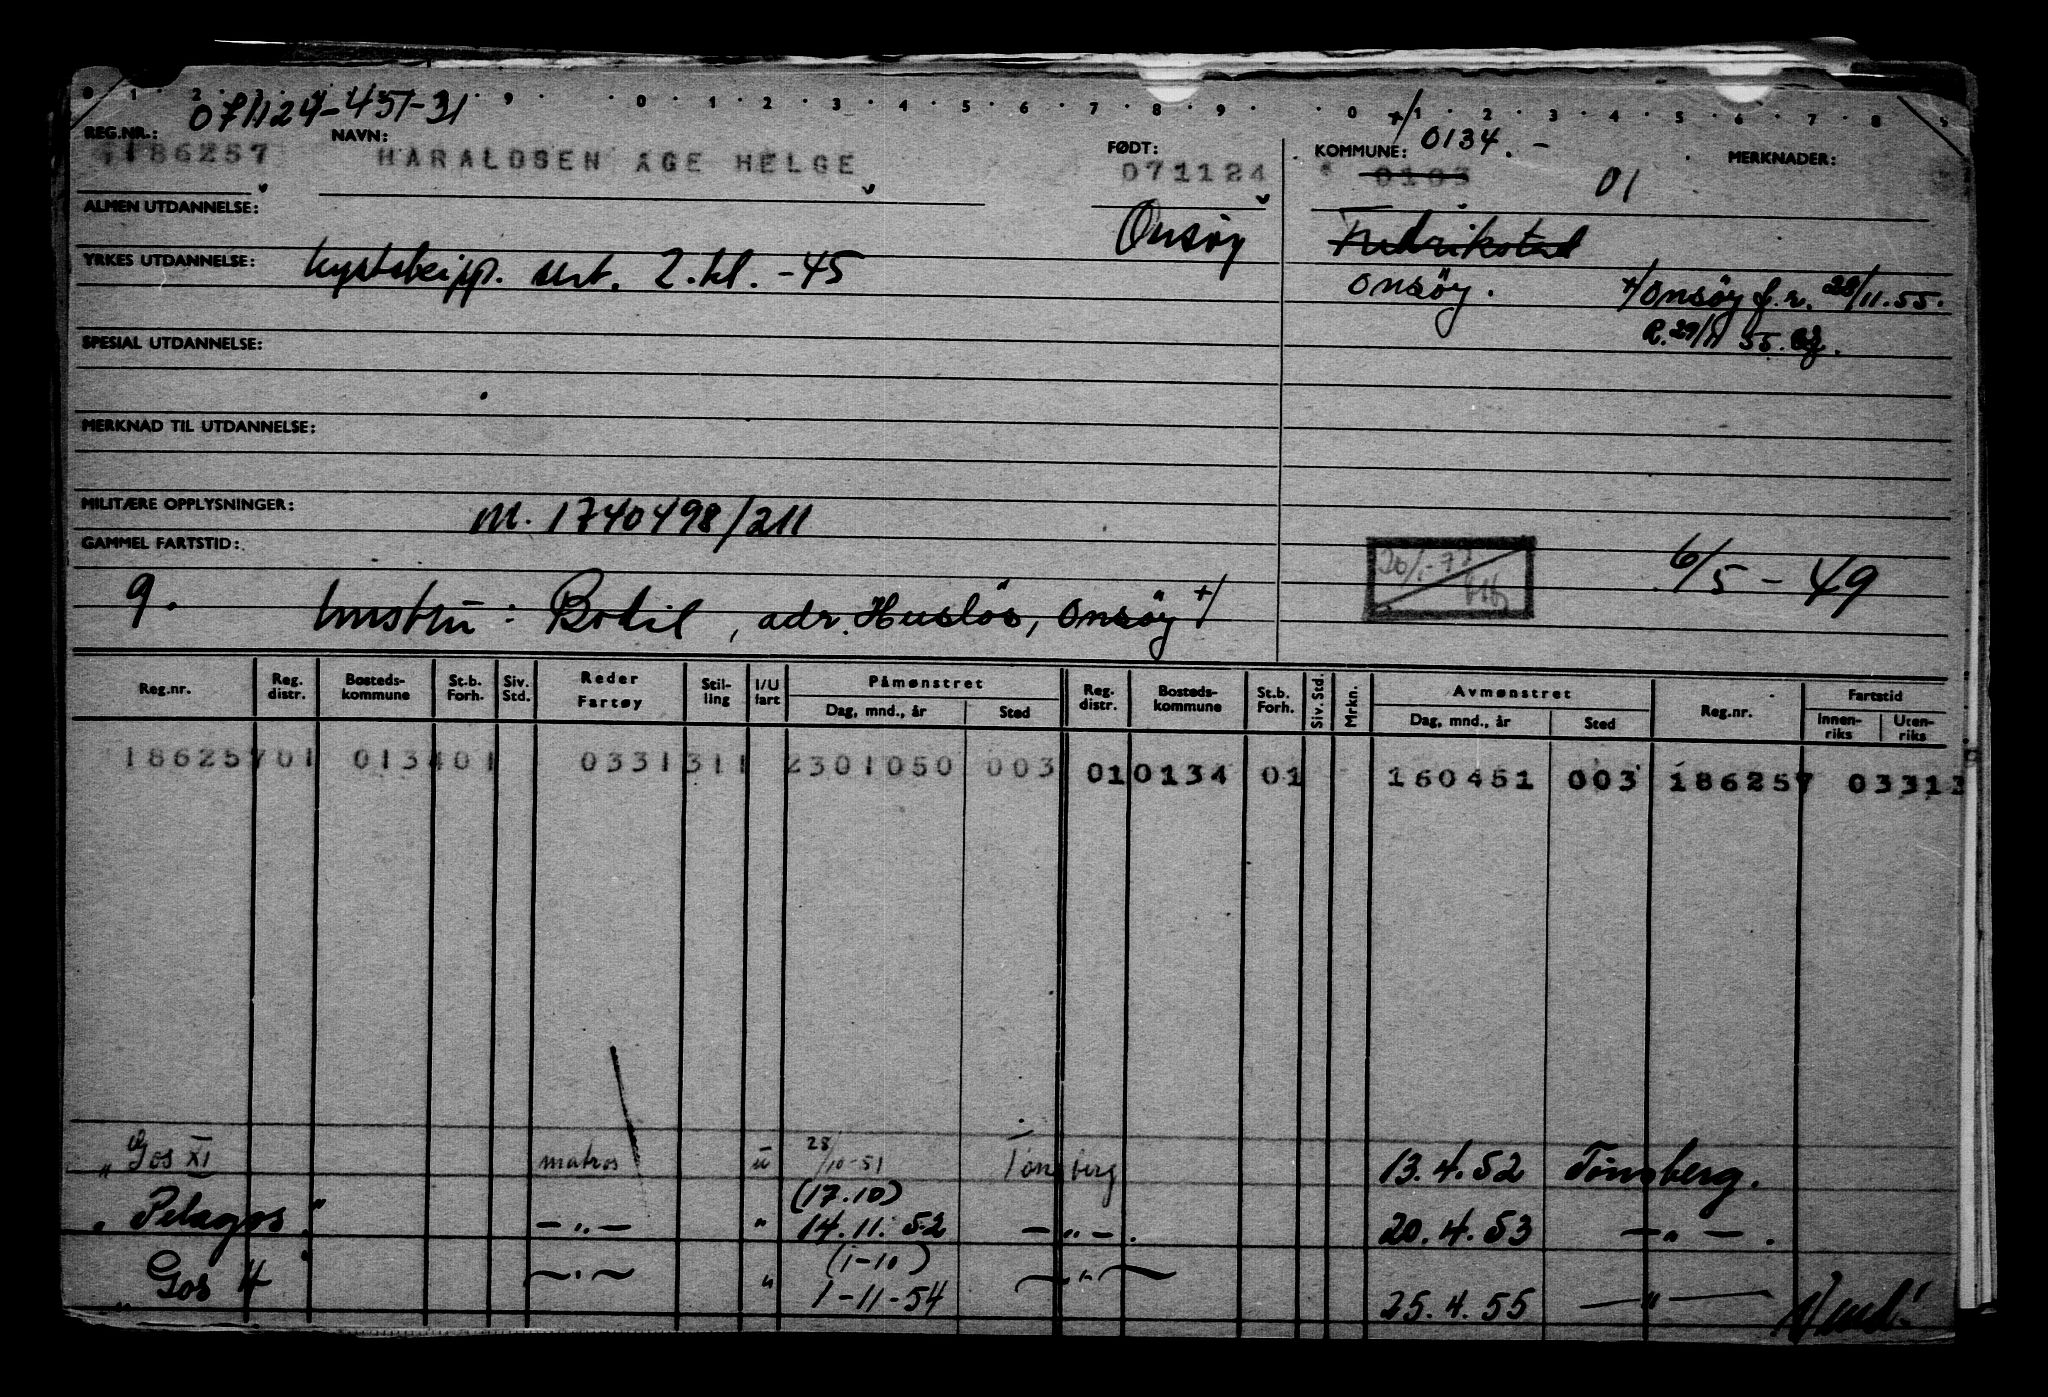 0 1 2 9 0 1 2 3 4 5 6 7 8 9 0 1 2 3 4 5 6 7 8 5
071124-451-31
REG.NR.: NAVN: FØDT: KOMMUNE: 0134. - MERKNADER:
186257 HARALDSEN AGE HELGE 071124 0103 01
ALMEN UTDANNELSE: Onsøy Fredrikstad
YRKES UTDANNELSE: kystskipp. sert. 2. kl. -45 onsöy. +/ onsöy f.r. 28/11.55.
SPESIAL UTDANNELSE: R. 29/11 55.
MERKNAD TIL UTDANNELSE:
MILITÆRE OPPLYSNINGER: M. 1740498/211
GAMMEL FARTSTID: 26/1-72 6/5-49
9. hustru: Bodil, adr. Huslös, onsöy +/
Reg.nr. Reg. distr. Bosteds-kommune St.b. Forh. Siv. Std. Reder Fartøy Stil-ling I/U fart Påmønstret Dag, mnd., år Sted Reg. distr. Bosteds-kommune St.b. Forh. Siv. Std. Mrkn. Avmønstret Dag, mnd., år Sted Reg.nr. Fartstid Innen-riks Uten-riks
186257 01 0134 01 0331 311 2301050 003 01 0134 01 160451 003 186257 03313
" Gos XI matros u 28/10-51 Tønsberg 13.4.52 Tønsberg.
(17.10)
" Pelagos " -"- " 14.11.52 -"-. 20.4.53 -"-.
(1-10)
" Gos 4 -"- " 1-11-54 -"- 25.4.55 -"- Vend!